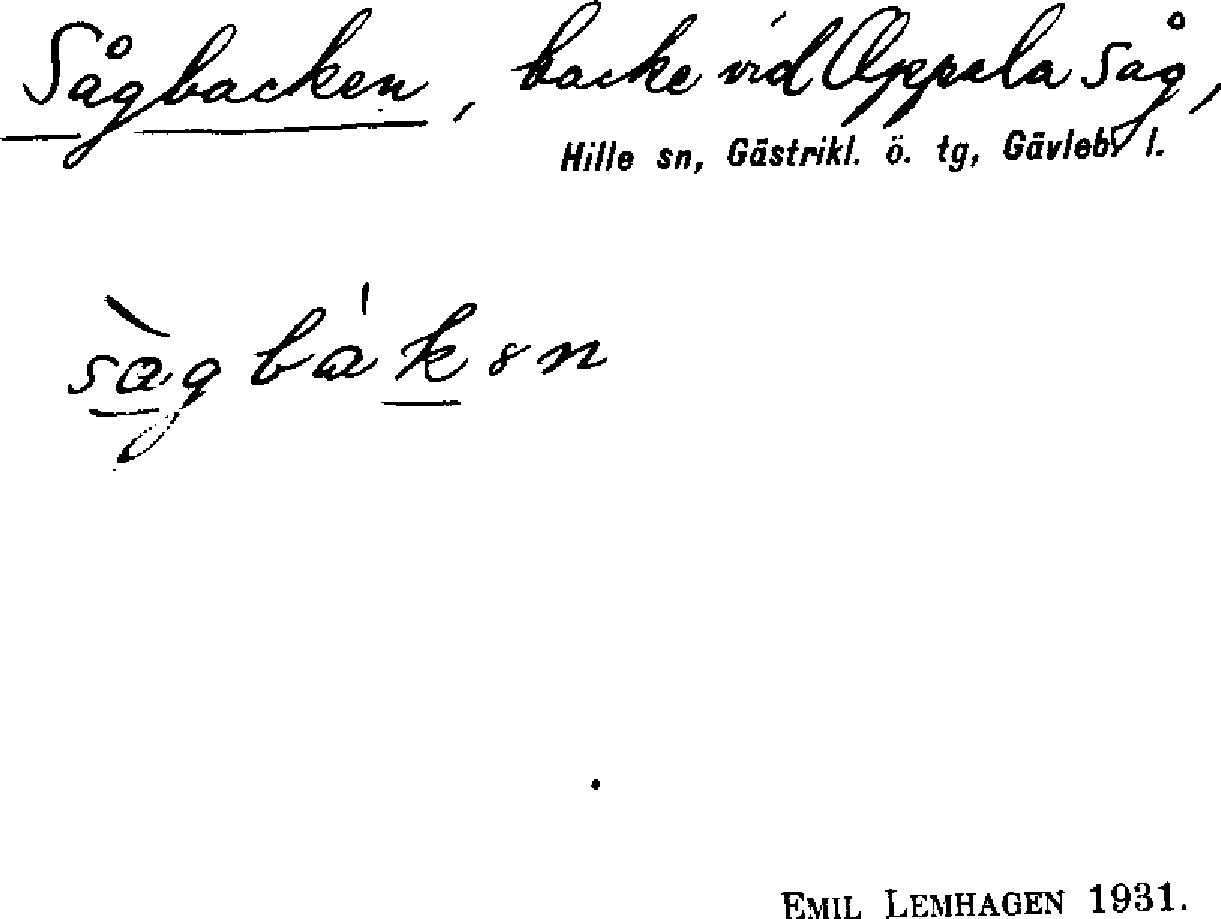 Sågbacken, backe vid Oppala såg,
Hille sn, Gästrikl. ö. tg, Gävleb. l.
EMIL LEMHAGEN 1931.